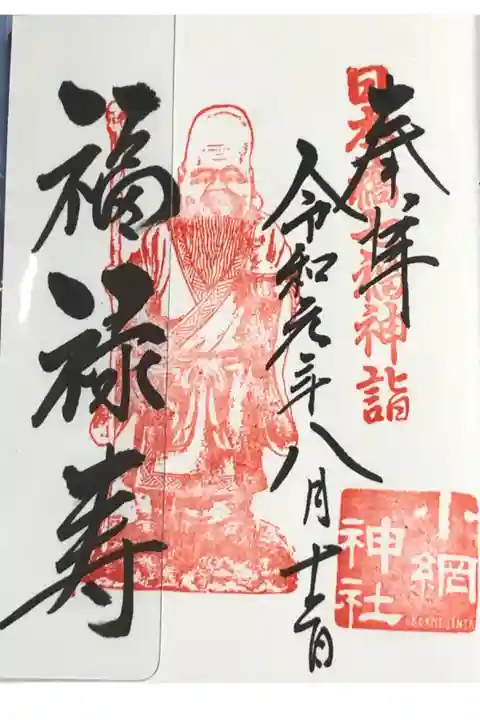 奉拝
日本橋七福神詣
令和元年八月十二日
福禄寿
小網
神社
©KOAMI JINJA